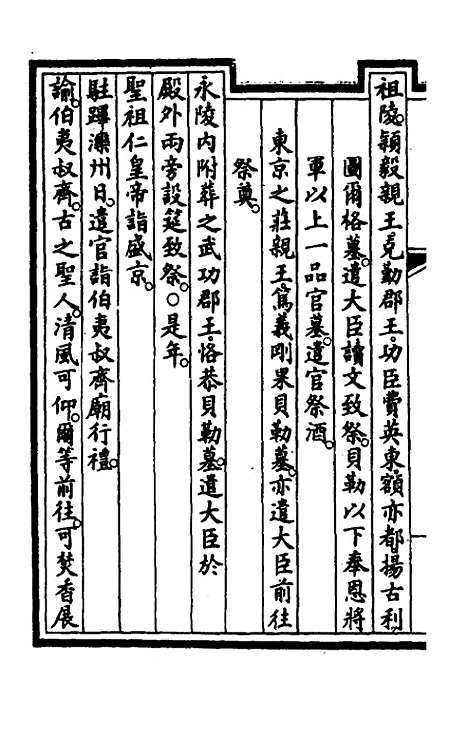 祖陵。穎毅親王。克勤郡王。功臣費英東。額亦都。揚古利
圖爾格墓。遣大臣讀文致祭。貝勒以下奉恩將
軍以上一品官墓。遣官祭酒。
東京之莊親王。篤義剛果貝勒墓。亦遣大臣前往
祭奠。
永陵內附葬之武功郡王。恪恭貝勒墓。遣大臣於
殿外兩旁設筵致祭。○是年。
聖祖仁皇帝詣盛京。
駐蹕灤州日。遣官詣伯夷叔齊廟行禮。
諭。伯夷叔齊。古之聖人。清風可仰。爾等前往。可焚香展